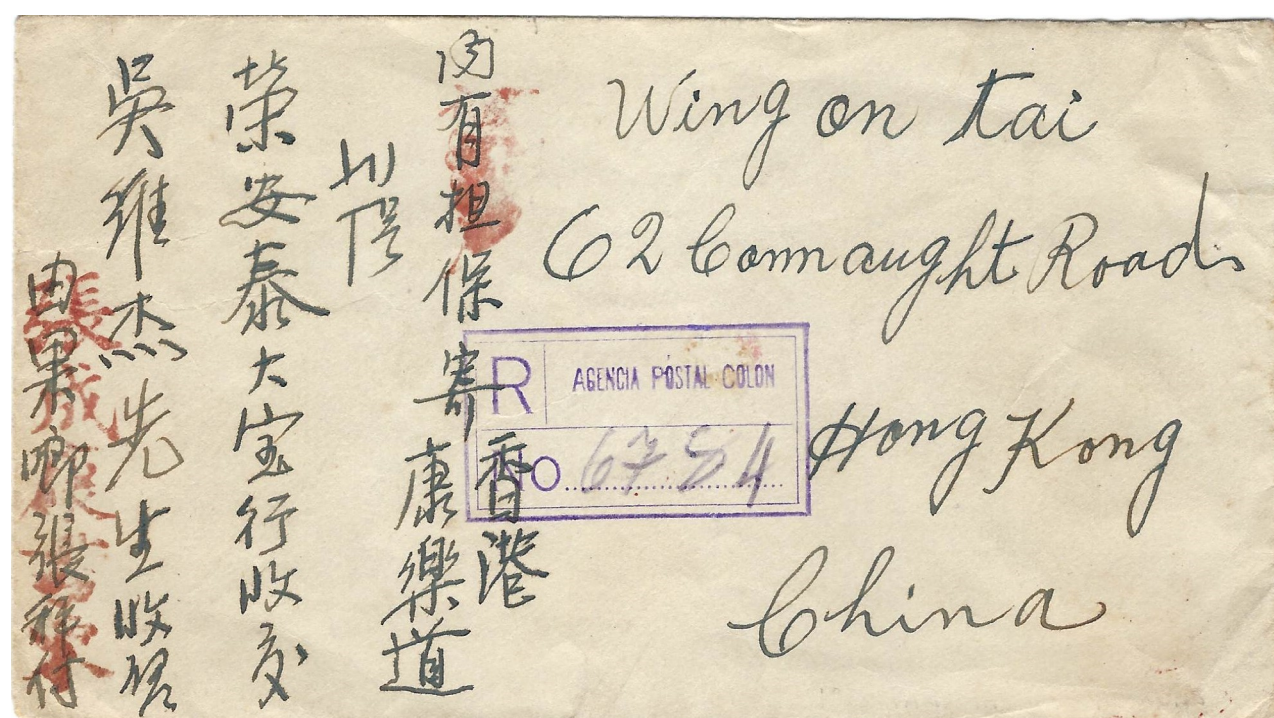 Wing on tai
62 Connaught Road
Hong Kong
China
R AGENCIA POSTAL COLON
NO 6754
內有担保寄香港
康樂道
榮安泰大宝行收交
吳維杰先生收啓
由果唧張拜付